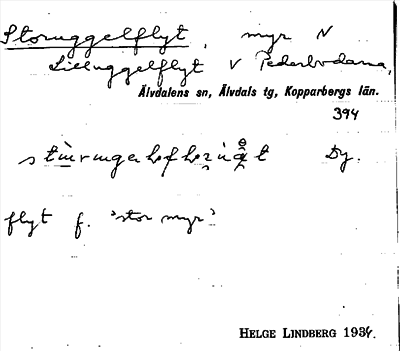 Storuggelflyt, myr N
Lilluggelflyt V Pederbodarna,
Älvdalens sn, Älvdals tg, Kopparbergs län.
394
Dy.
flyt f. 'stor myr'
HELGE LINDBERG 1934.